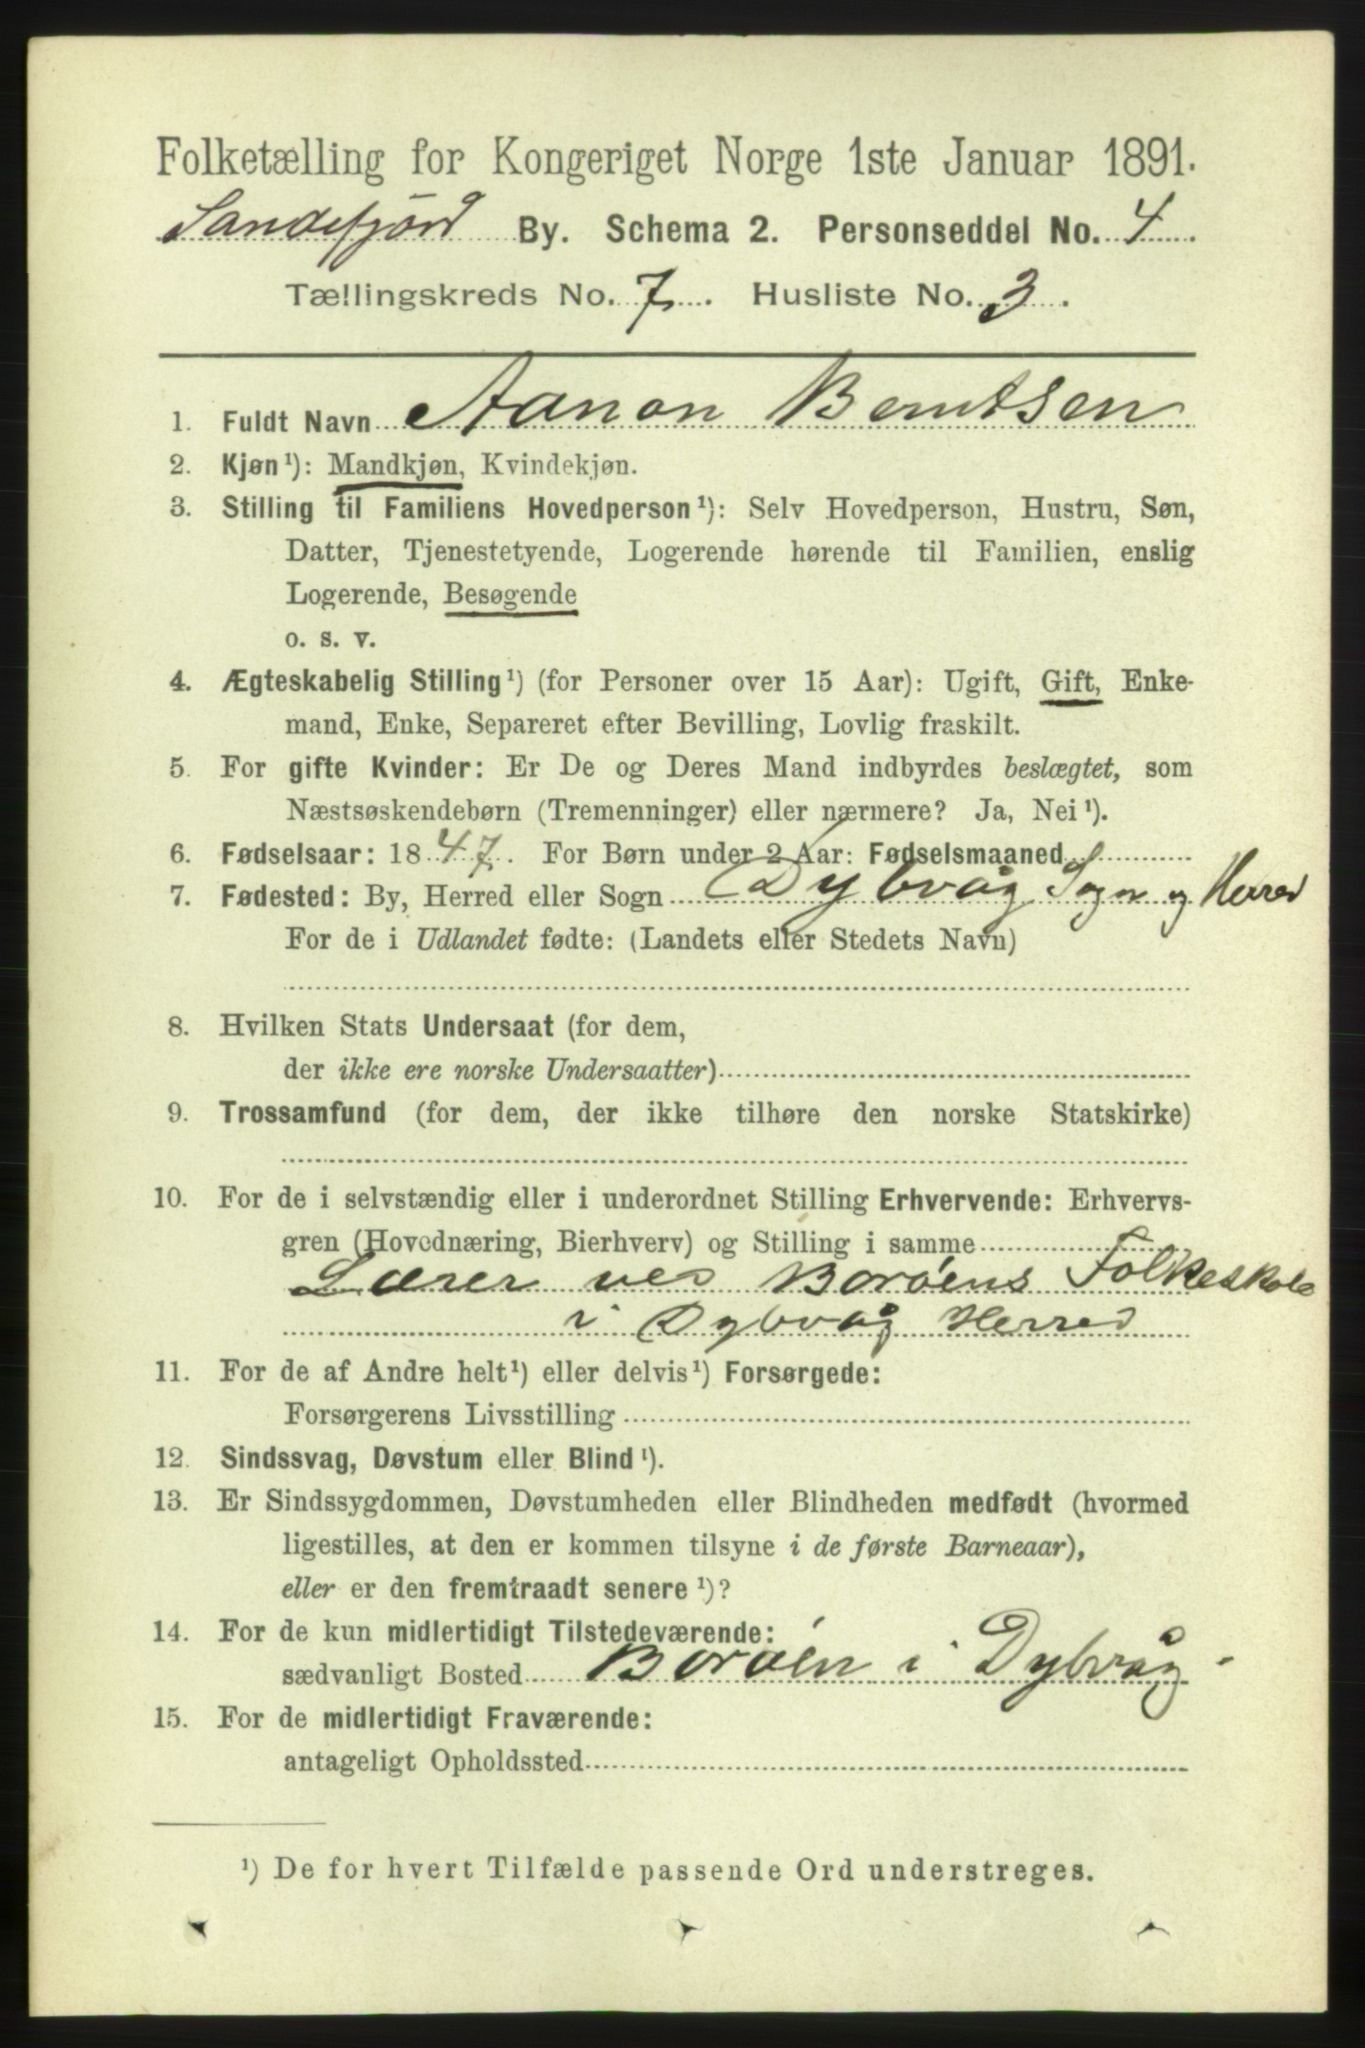 Folketælling for Kongeriget Norge 1ste Januar 1891.
Sandefjord By. Schema 2. Personseddel No. 4
Tællingskreds No. 7. Husliste No. 3.
1. Fuldt Navn Aanon Berntsen
2. Kjøn¹): Mandkjøn, Kvindekjøn.
3. Stilling til Familiens Hovedperson¹): Selv Hovedperson, Hustru, Søn,
Datter, Tjenestetyende, Logerende hørende til Familien, enslig
Logerende, Besøgende
o. s. v.
4. Ægteskabelig Stilling¹) (for Personer over 15 Aar): Ugift, Gift, Enke-
mand, Enke, Separeret efter Bevilling, Lovlig fraskilt.
5. For gifte Kvinder: Er De og Deres Mand indbyrdes beslægtet, som
Næstsøskendebørn (Tremenninger) eller nærmere? Ja, Nei¹).
6. Fødselsaar: 1847. For Børn under 2 Aar: Fødselsmaaned
7. Fødested: By, Herred eller Sogn Dybvåg Sogn og Herred
For de i Udlandet fødte: (Landets eller Stedets Navn)
8. Hvilken Stats Undersaat (for dem,
der ikke ere norske Undersaatter)
9. Trossamfund (for dem, der ikke tilhøre den norske Statskirke)
10. For de i selvstændig eller i underordnet Stilling Erhvervende: Erhvervs-
gren (Hovednæring, Bierhverv) og Stilling i samme
Lærer ved Borøens Folkeskole
i Dybvåg Herred
11. For de af Andre helt¹) eller delvis¹) Forsørgede:
Forsørgerens Livsstilling
12. Sindssvag, Døvstum eller Blind¹).
13. Er Sindssygdommen, Døvstumheden eller Blindheden medfødt (hvormed
ligestilles, at den er kommen tilsyne i de første Barneaar),
eller er den fremtraadt senere¹)?
14. For de kun midlertidigt Tilstedeværende:
sædvanligt Bosted Borøen i Dybvåg.
15. For de midlertidigt Fraværende:
antageligt Opholdssted
¹) De for hvert Tilfælde passende Ord understreges.